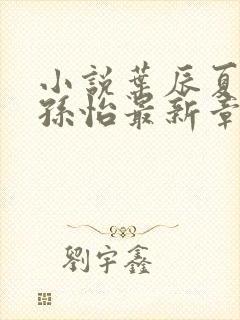 小説葉辰夏
孫怡最新章
劉宇鑫